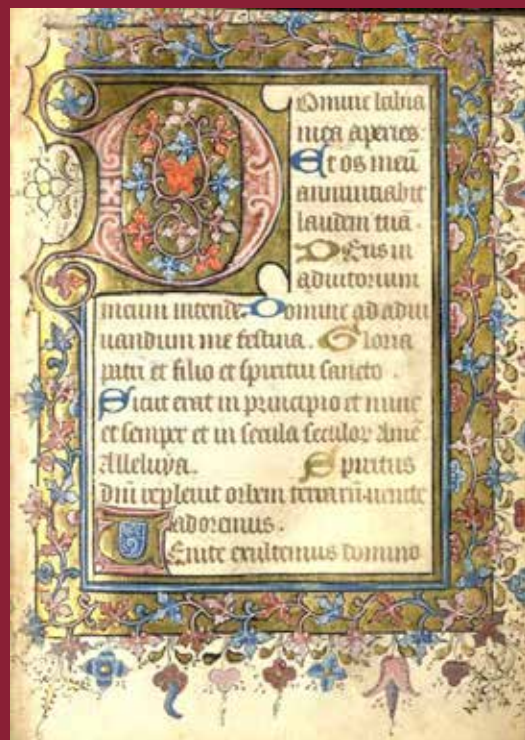 DOmine labia
mea aperies:
Et os meū
annuntiabit
laudem tuā.
DEus in
adiutorium
meum intende. Domine ad adiu
uandum me festina. Gloria
patri et filio et spiritui sancto.
Sicut erat in principio et nunc
et semper et in secula seculor Amē.
Alleluya. Spiritus
dñi repleuit orbem terrarū uenite
adoremus.
UEnite exultemus domino